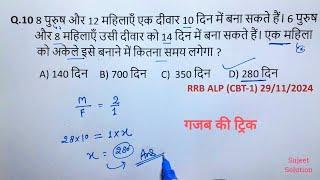 Q.10 8 पुरुष और 12 महिलाएँ एक दीवार 10 दिन में बना सकते हैं। 6 पुरुष
और 8 महिलाएँ उसी दीवार को 14 दिन में बना सकते हैं। एक महिला
को अकेले इसे बनाने में कितना समय लगेगा ?
A) 140 दिन B) 700 दिन C) 350 दिन D) 280 दिन
RRB ALP (CBT-1) 29/11/2024
M/F = 2/1
गजब की ट्रिक
28×10 = 1×x
x = 280 Ans
Sujeet
Solution